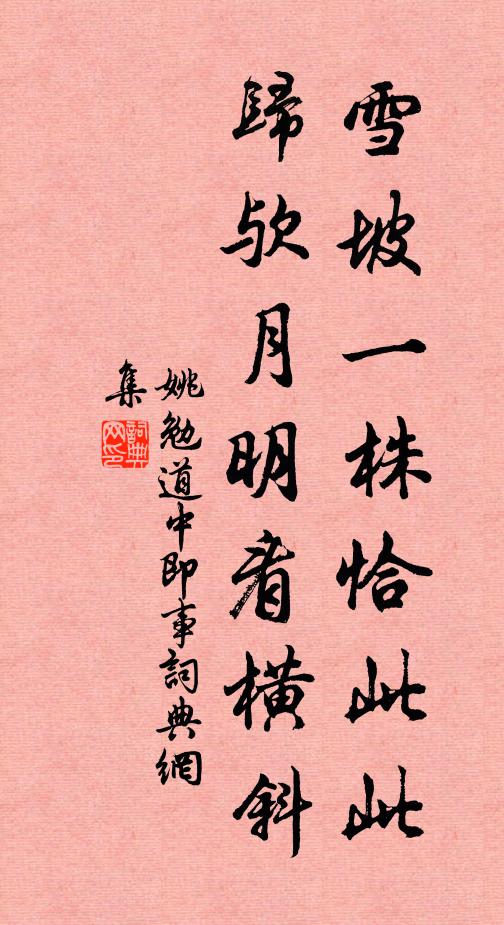 雪坡一株恰此此
歸欤月明看橫斜
姚勉道中即事詞典網
集
詞典
网印